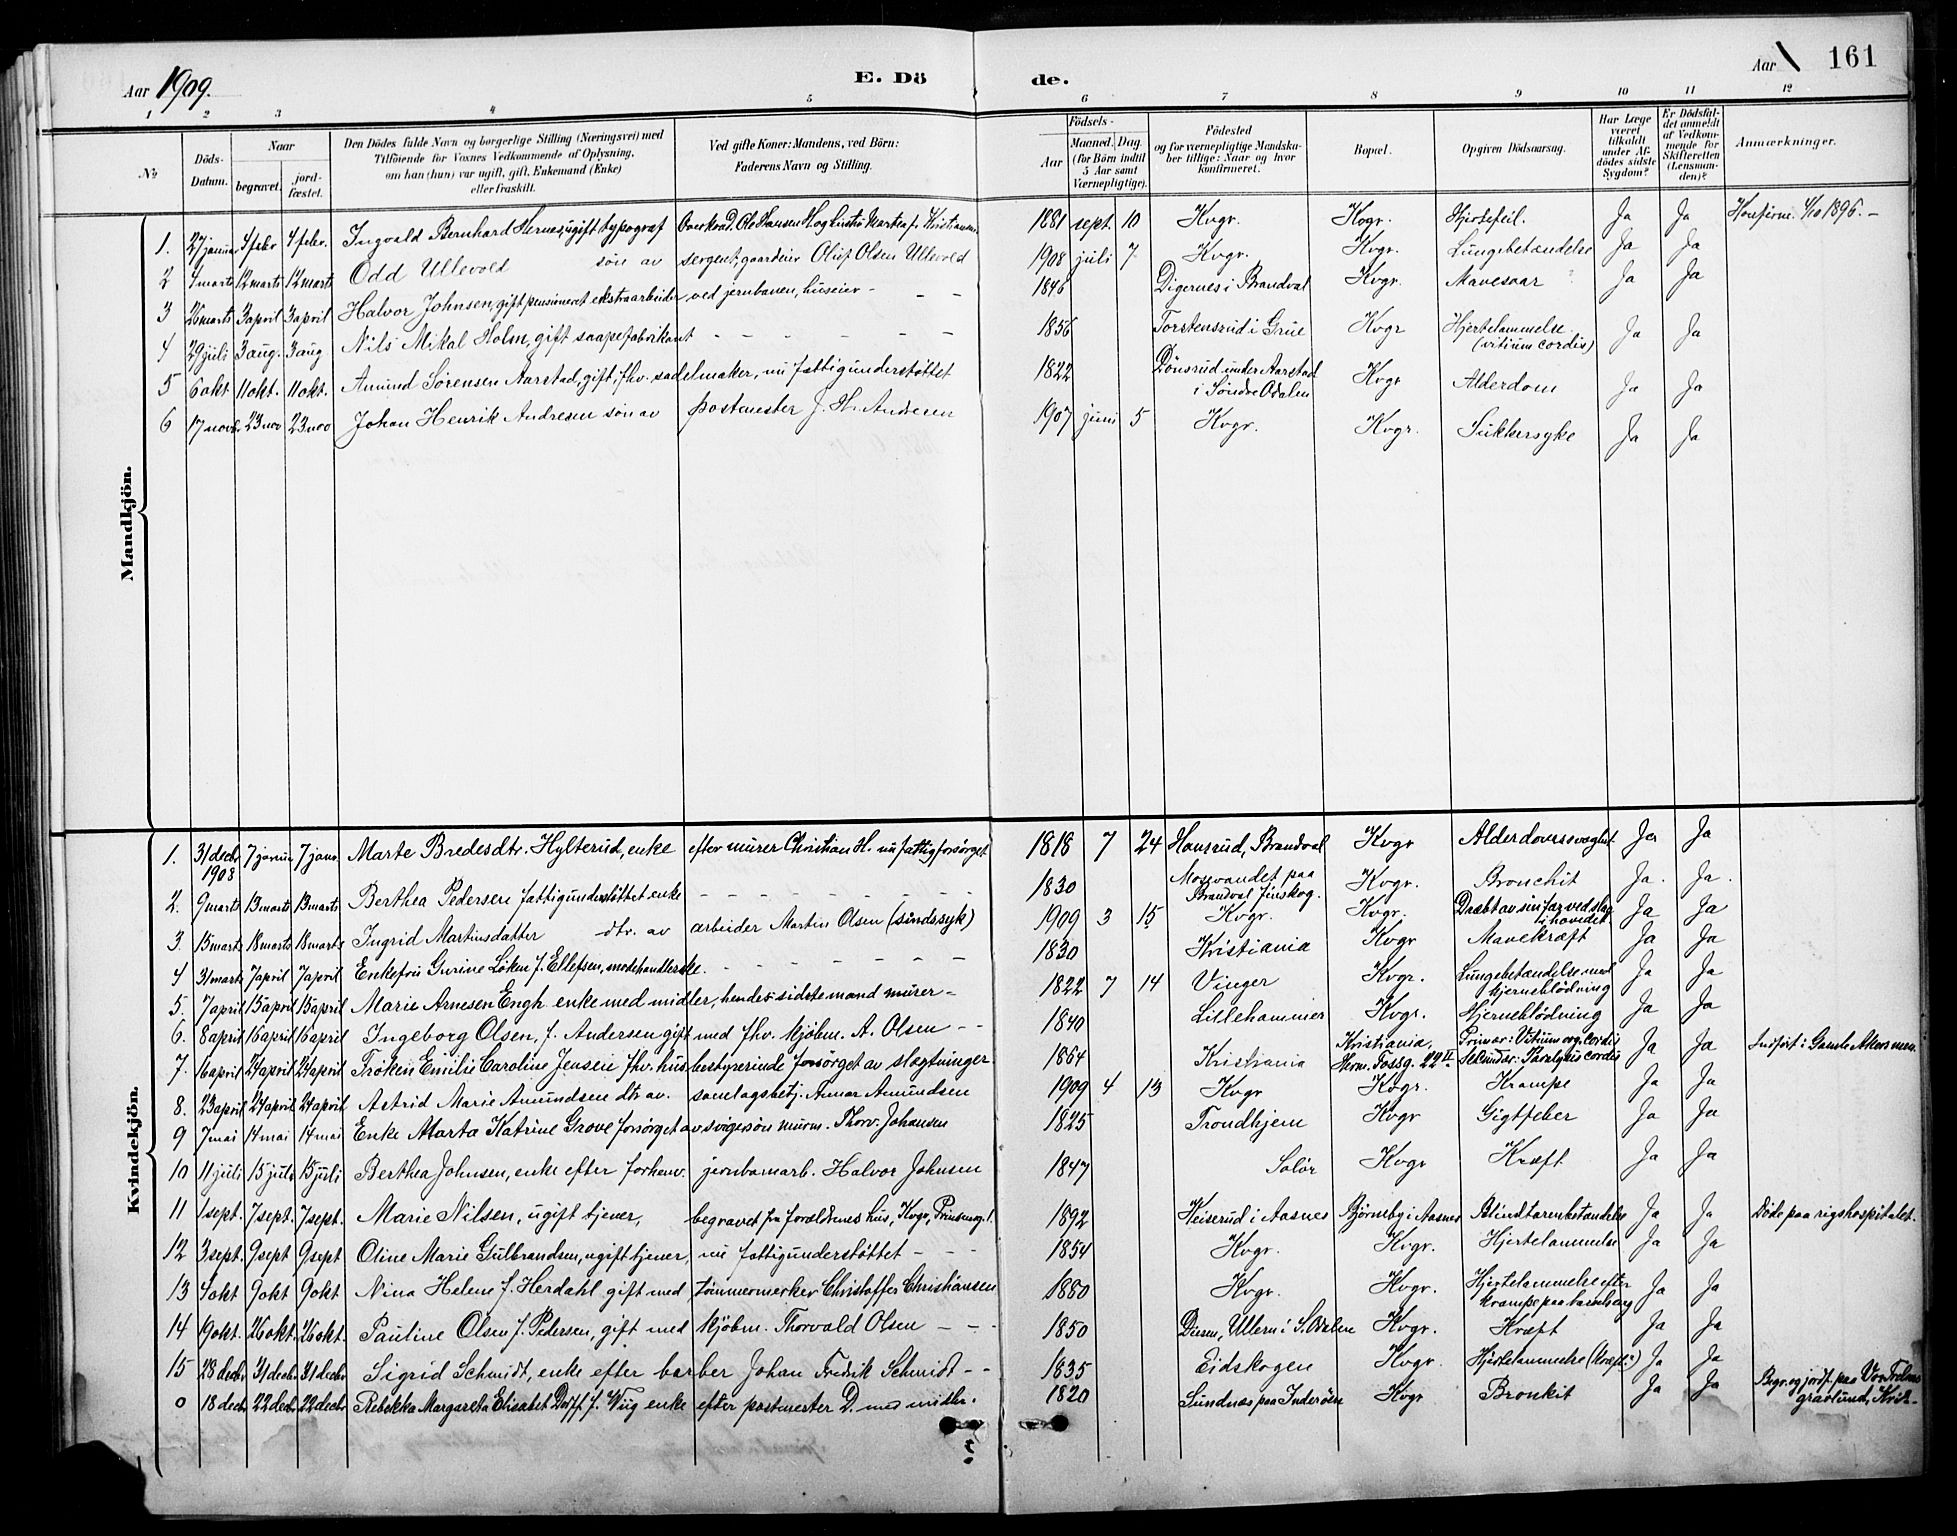 Aar 1909. E. Dö de. Aar 161
1 2 3 4 5 6 7 8 9 10 11 12
No Döds-Datum. Naar begravet. jord-fæstet. Den Dödes fulde Navn og borgerlige Stilling (Næringsvei) med Tilföiende for Voxnes Vedkommende af Oplysning, om han (hun) var ugift, gift, Enkemand (Enke) eller fraskilt. Ved gifte Koner: Mandens, ved Börn: Faderens Navn og Stilling. Födsels- Aar Maaned. Dag. (for Börn indtil 5 Aar samt Værnepligtige). Födested og for værnepligtige Mandskaber tillige: Naar og hvor konfirmeret. Bopæl. Opgiven Dödsaarsag. Har Læge været tilkaldt under Afdödes sidste Sygdom? Er Dödsfaldet anmeldt af Vedkommende for Skifteretten (Lensmanden)? Anmærkninger.
Mandkjön.
1. 27 januar 4 febr 4 febr. Ingvald Bernhard Hernes, ugift typograf 1881 sept. 10 Kvgr. Kvgr. Hjertefeil. Ja Ja Konfirm. 4/10 1896. –
2 7 marts 12 marts 12 marts Odd Ullevold søn av sergent, gaardeier Oluf Olsen Ullevold 1908 juli 7 Kvgr. Kvgr. Lungebetændelse Ja Ja
3 26 marts 3 april 3 april Halvor Johnsen, gift pensioneret ekstraarbeider ved jernbanen, huseier – – – 1846 Digernes i Brandval Kvgr. Mavesaar Ja Ja
4 29 juli 3 aug. 3 aug Nils Mikal Holm, gift saapefabrikant – – – – – – 1856 Torstensrud i Grue Kvgr Hjertelammelse (vitium cordis) Ja Ja
5 6 okt 11 okt. 11 okt. Amund Sørensen Aarstad, gift, fhv. sadelmaker, nu fattigunderstøttet 1822 Dønsrud under Aarstad i Søndre Odalen Kvgr Alderdom Ja Ja
6 17 novbr 23 nov 23 nov Johan Henrik Andresen søn av postmester J. H. Andresen 1907 juni 5 Kvgr. Kvgr. Sukkersyke Ja Ja
Kvindekjön.
1. 31 decbr 1908 7 januar 7 janr. Marte Bredesdtr. Hylterud, enke efter murer Christian H. nu fattigforsørget 1818 7 24 Hansrud, Brandval Kvgr Alderdomssvaghet Ja Ja
2. 9 marts 13 marts 13 marts Berthea Pedersen fattigunderstøttet enke – – – – – – 1830 Mosevandet paa Brandval finskog. Kvgr. Bronchit Ja. Ja.
3. 15 marts 18 marts 18 marts Ingrid Martinsdatter dtr. av arbeider Martin Olsen (sindssyk) 1909 3 15 Kvgr. Kvgr. Dræbt av sin far ved slag i hovedet Ja Ja
4 31 marts 7 april 7 april Enkefru Gurine Løken f. Ellefsen, modehandlerske. – – – – – – 1830 Kristiania Kvgr Mavekræft Ja Ja
5. 7 april 15 april 15 april Marie Arnesen Engh enke med midler, hendes sidste mand murer – 1822 7 14 Vinger Kvgr. Lungebetændelse med hjerneblödning Ja Ja
6. 8 april 16 april 16 april Ingeborg Olsen, f. Andersen gift med fhv. kjøbm. A. Olsen – – 1840 Lillehammer Kvgr. Hjerneblödning Ja Ja
7. 16 april 24 april 24 april Frøken Emilie Caroline Jensen fhv. husbestyrerinde forsørget av slegtninger 1864 Kristiania Kristiania, Herm. Fossg. 22 II Primær: Vitium org. cordis Sekundær: Paralysis cordis Ja Ja Indført i Gamle Akers men.
8. 23 april 24 april 24 april Astrid Marie Amundsen dtr av. samlagsbetj. Annar Amundsen 1909 4 13 Kvgr Kvgr. Krampe Ja Ja
9 7 mai 14 mai 14 mai Enke Marta Katrine Grove forsørget av svigersøn murm. Thorv. Johansen 1825 Trondhjem Kvgr Gigtfeber Ja Ja
10 11 juli 15 juli 15 juli Berthea Johnsen, enke efter forhenv. jernbanearb. Halvor Johnsen 1847 Solör Kvgr Kræft Ja Ja
11 1 sept. 7 sept. 7 sept. Marie Nilsen, ugift tjener, begravet fra forældrenes hus, Kvgr, Prinsensg. 1. 1892 Keiserud i Aasnes Bjørneby i Aasnes Blindtarmbetændelse Ja Ja Døde paa rigshospitalet.
12 3 sept. 9 sept 9 sept Oline Marie Gulbrandsen, ugift tjener, nu fattigunderstøttet – – – 1854 Kvgr. Kvgr. Hjertelammelse Ja Ja
13 4 okt 9 okt 9 okt Nina Helene f. Herdahl gift med tømmermerker Christoffer Christiansen 1880 Kvgr. Kvgr. Hjertelammelse efter krampe paa barselseng Ja Ja
14 19 okt. 26 okt. 26 okt. Pauline Olsen f. Pedersen, gift med kjøbm. Thorvald Olsen – – – 1850 Disen, Ullern i S. Odalen Kvgr. Kræft Ja Ja
15 28 decbr 31 decbr 31 decbr Sigrid Schmidt, enke efter barber Johan Fredrik Schmidt – – 1835 Eidskogen Kvgr. Hjertelammelse (kræft?) Ja Ja
0 18 decbr. 22 decbr. 22 decbr. Rebekka Margareta Elisabet Dorff f. Wüg enke efter postmester D. med midler. 1820 Sundnes paa Inderøen Kvgr Bronkit Ja Ja Begr. og jordf. paa Vor Frelsers gravlund, Krist.